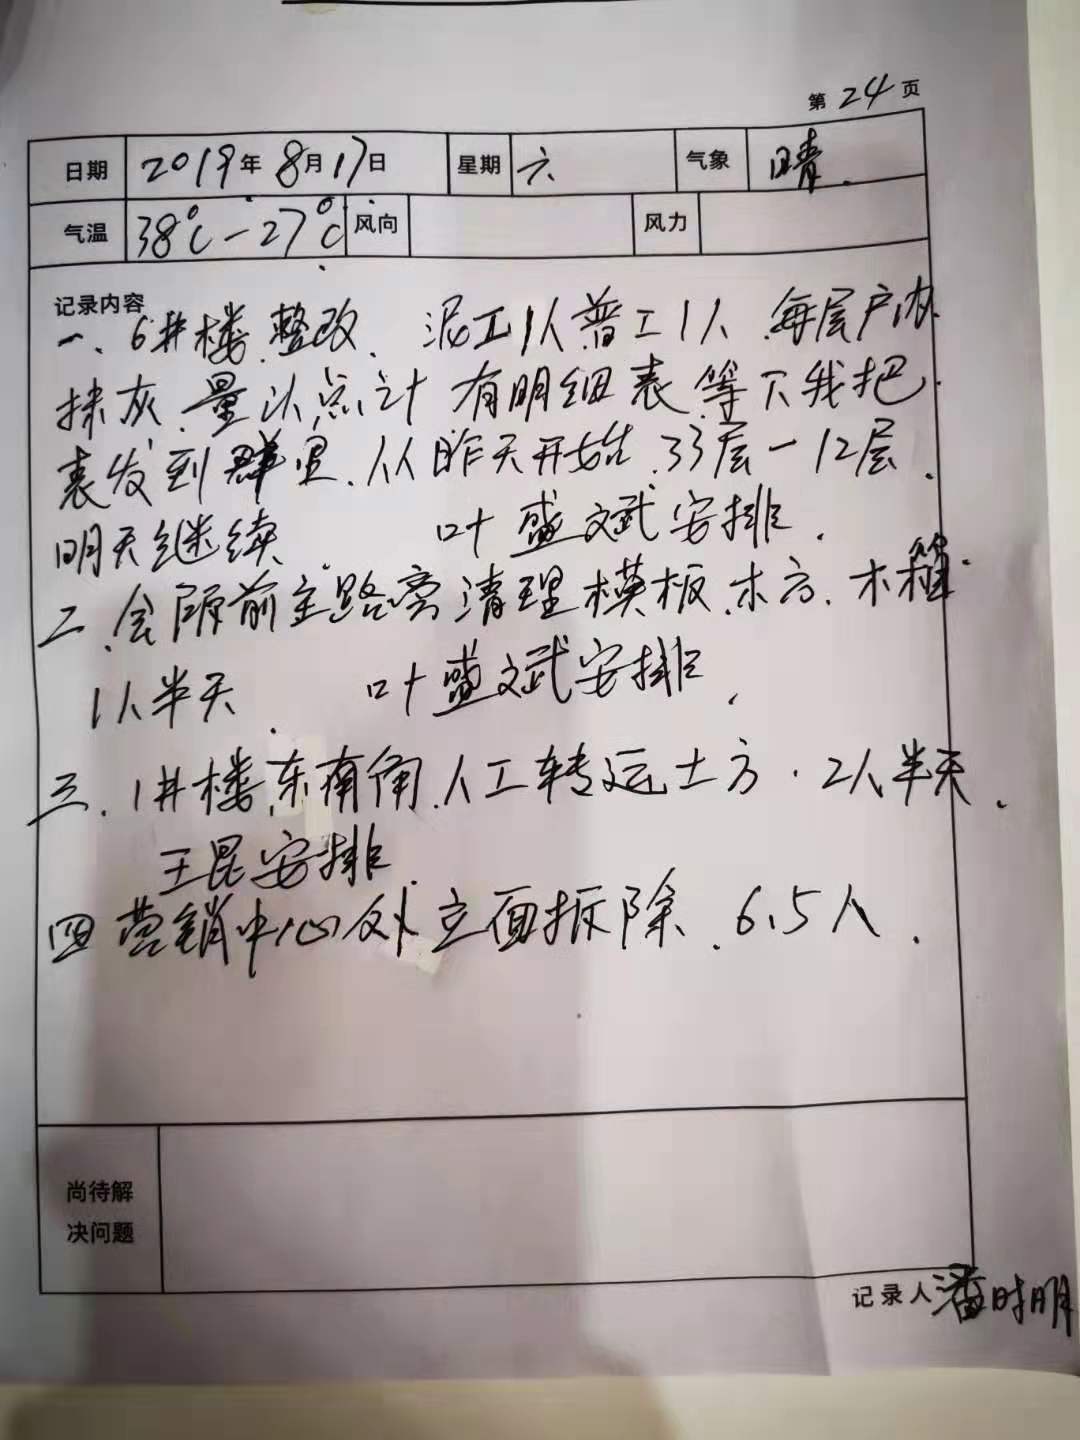 第 24 页
日期 2019年 8月17日 星期 六 气象 晴.
气温 38℃-27℃ 风向 风力
记录内容
一、6#楼 整改、泥工1人 普工1人 每层户内
抹灰 量以点计 有明细表 等下我把
表发到群里、从昨天开始 33层-12层.
明天继续 叶盛斌安排.
二、会所前主路旁清理模板、木方、木
1人半天 叶盛斌安排.
三、1#楼东南角人工转运土方. 2人半天.
王昆安排
四 营销中心外立面拆除. 6.5人.
尚待解
决问题
记录人 潘时明